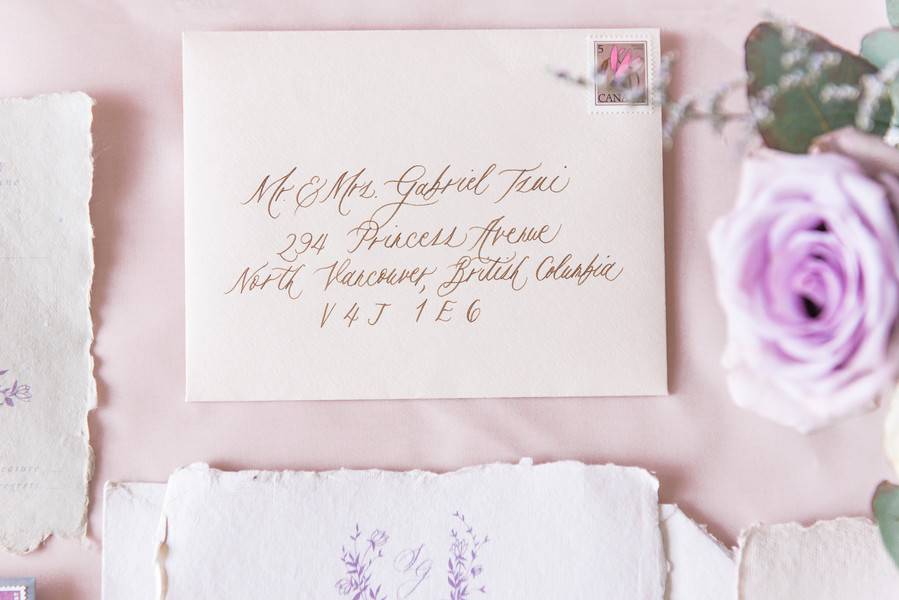 5
CANADA
Mr. & Mrs. Gabriel Tsui
294 Princess Avenue
North Vancouver, British Columbia
V4J 1E6
SG